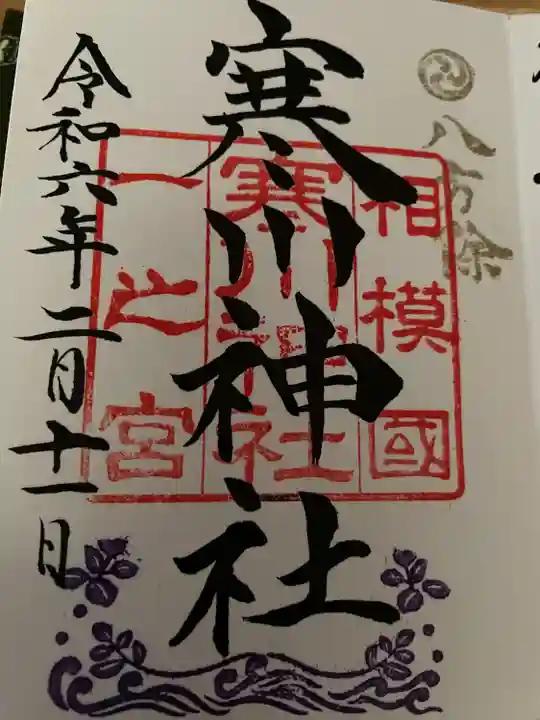 八方除
相模國
寒川神社
一之宮
寒川神社
令和六年二月十一日